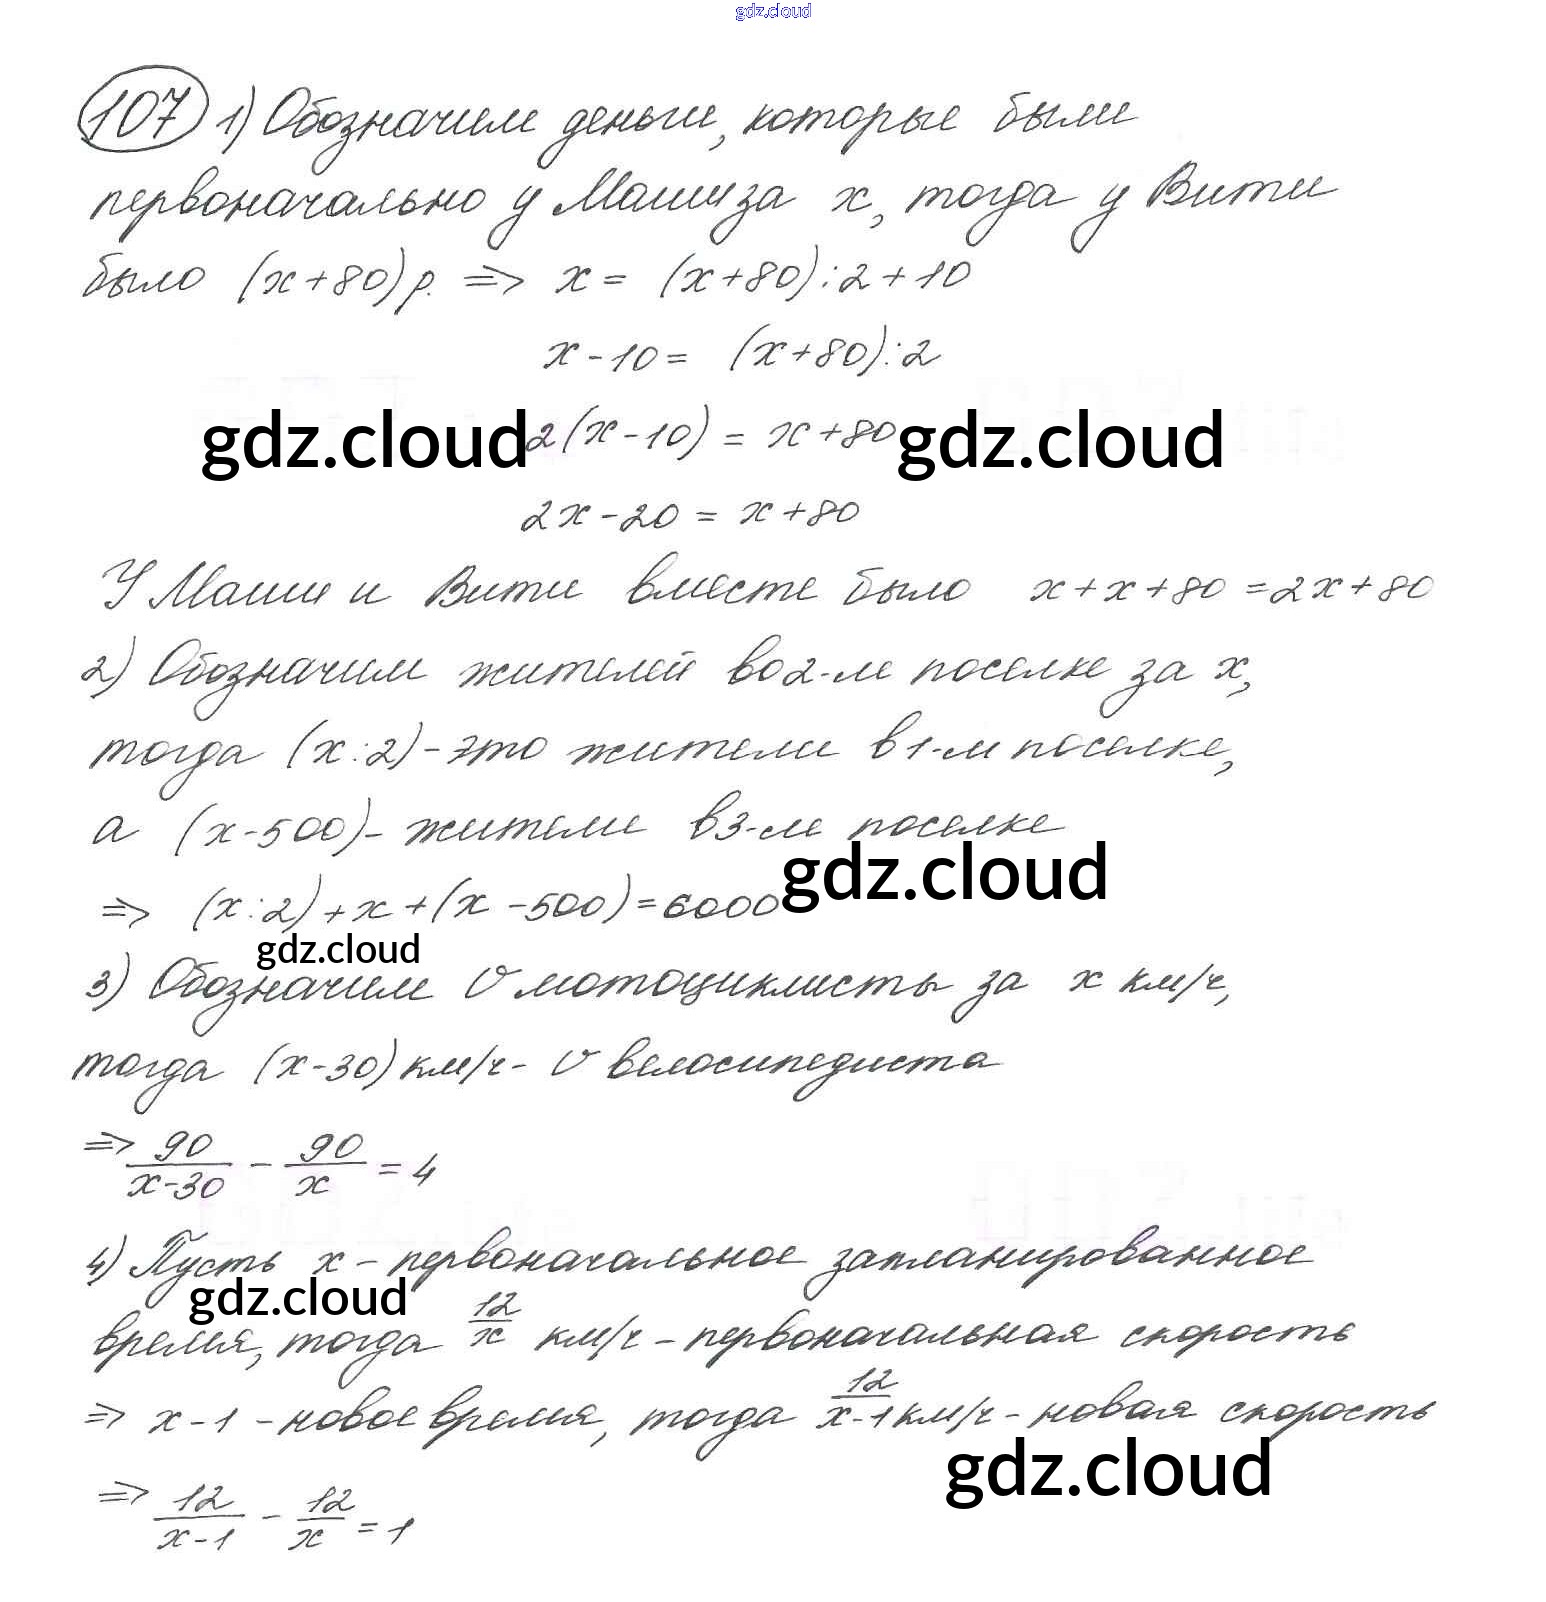 gdz.cloud
107 1) Обозначим деньги, которые были
первоначально у Маши за x, тогда у Вити
было (x+80) р. => x = (x+80):2+10
x-10 = (x+80):2
gdz.cloud 2(x-10) = x+80 gdz.cloud
2x-20 = x+80
У Маши и Вити вместе было x+x+80=2x+80
2) Обозначим жителей во 2-м поселке за x,
тогда (x:2) - это жители в 1-м поселке,
а (x-500) - жители в 3-м поселке
=> (x:2)+x+(x-500)=6000 gdz.cloud
gdz.cloud
3) Обозначим v мотоциклисты за x км/ч,
тогда (x-30) км/ч - v велосипедиста
=> 90/(x-30) - 90/x = 4
4) Пусть x - первоначальное запланированное
gdz.cloud
время, тогда 12/x км/ч - первоначальная скорость
=> x-1 - новое время, тогда 12/(x-1) км/ч - новая скорость
gdz.cloud
=> 12/(x-1) - 12/x = 1